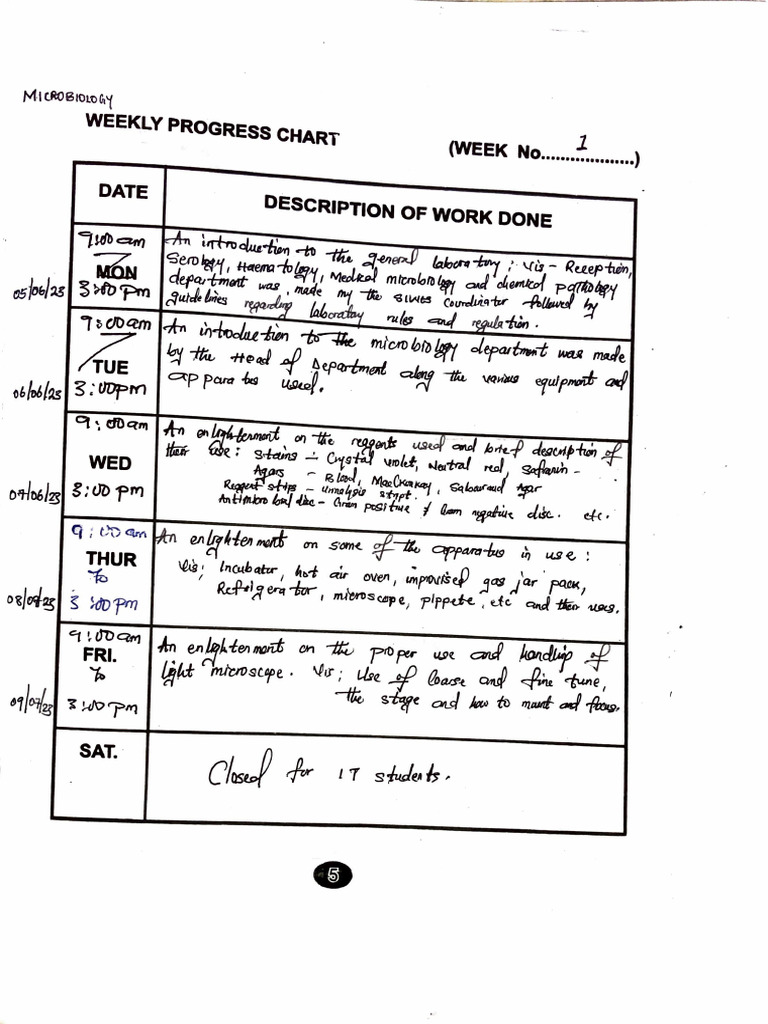 MICROBIOLOGY
WEEKLY PROGRESS CHART
(WEEK No. 1 )
DATE
DESCRIPTION OF WORK DONE
9:00am
MON
3:00pm
05/06/23
An introduction to the general laboratory; Vis - Reception,
Serology, Haematology, Medical microbiology and chemical pathology
department was made my the SIWES Coordinator followed by
guidelines regarding laboratory rules and regulation.
9:00am
TUE
3:00pm
06/06/23
An introduction to the microbiology department was made
by the Head of Department along the various equipment and
apparatus used.
9:00am
WED
3:00pm
07/06/23
An enlightenment on the reagents used and brief description of
their use: Stains - Crystal violet, Neutral red, Safranin -
Agars - Blood, MacConkey, Sabouraud Agar
Reagent strips - Urinalysis
Antimicrobial disc - Gram positive & Gram negative disc. etc.
9:00am
THUR
To
3:00pm
An enlightenment on some of the apparatus in use:
Vis; Incubator, hot air oven, improvised gas jar pack,
Refrigerator, microscope, pippete, etc and their uses.
9:00am
FRI.
To
3:00pm
09/07/23
An enlightenment on the proper use and handling of
light microscope. Vis; Use of coarse and fine tune,
the stage and how to mount and focus.
SAT.
Closed for students.
5